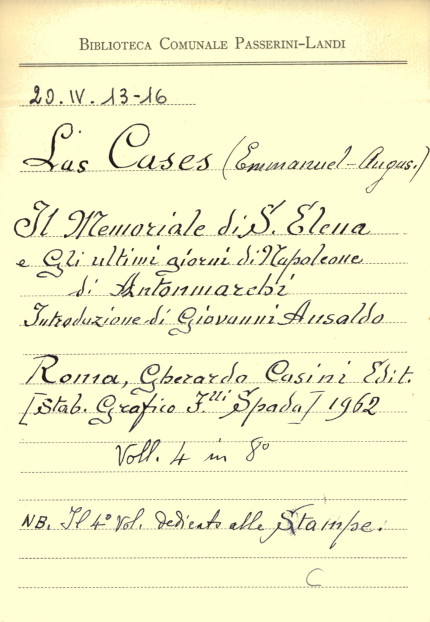 BIBLIOTECA COMUNALE PASSERINI-LANDI
20.IV.13-16
Las Cases (Emmanuel-Augus.)
Il Memoriale di S. Elena
e Gli ultimi giorni di Napoleone
di Antonmarchi
Introduzione di Giovanni Ansaldo
Roma, Gherardo Casini Edit.
[Stab. Grafico F.lli Spada] 1962
Voll. 4 in 8°
NB. Il 4° vol. dedicato alle Stampe.
C